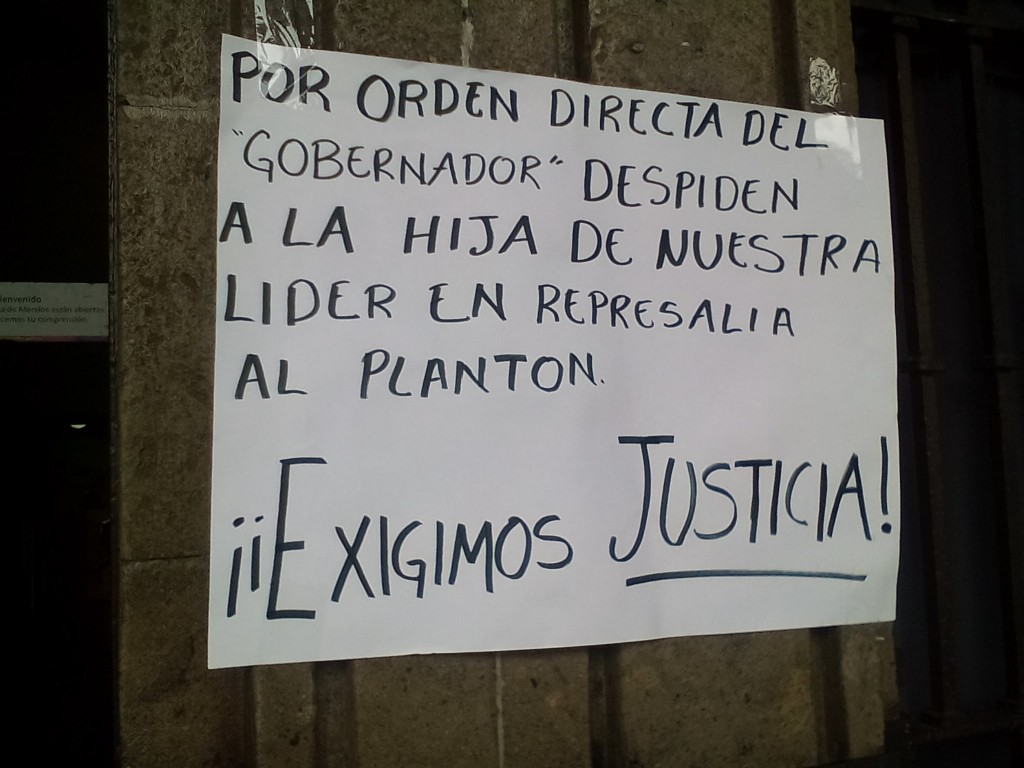 POR ORDEN DIRECTA DEL
"GOBERNADOR" DESPIDEN
A LA HIJA DE NUESTRA
LIDER EN REPRESALIA
AL PLANTON.
¡¡EXIGIMOS JUSTICIA!
ienvenido
a de Morelos están abiertas
cemos tu comprensión